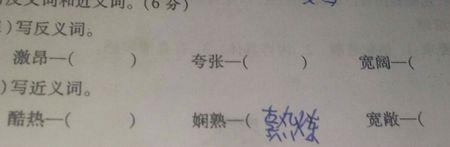 反义词和近义词。(6 分)
)写反义词。
激昂—(　　) 夸张—(　　) 宽阔—(
)写近义词。
酷热—(　　) 娴熟—( 熟炼 宽敞—(